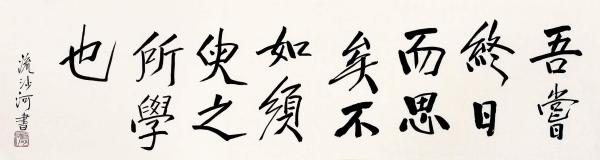 吾嘗
終日
而思
矣不
如須
臾之
所學
也
流沙河書